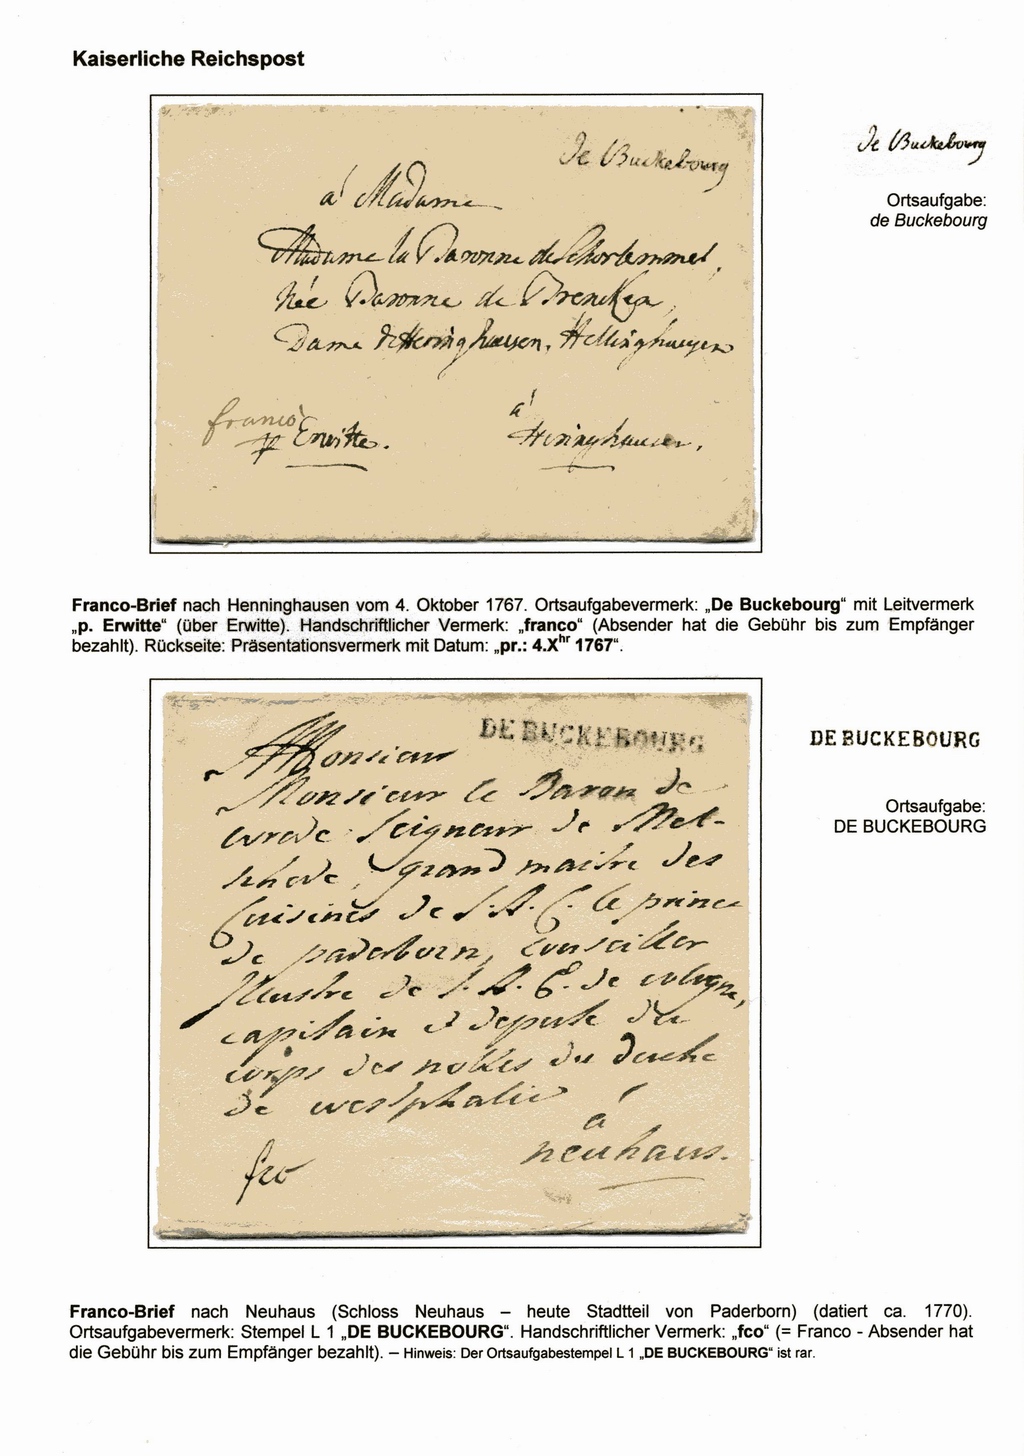 Kaiserliche Reichspost
De Buckebourg
à Madame
Madame la Baronne de Schorlemmel,
Née Baronne de Brencken,
Dame de Heringhausen, Hellinghausen
franco
p Erwitte.
à
Heringhausen.
De Buckebourg
Ortsaufgabe:
de Buckebourg
Franco-Brief nach Henninghausen vom 4. Oktober 1767. Ortsaufgabevermerk: „De Buckebourg“ mit Leitvermerk
„p. Erwitte“ (über Erwitte). Handschriftlicher Vermerk: „franco“ (Absender hat die Gebühr bis zum Empfänger
bezahlt). Rückseite: Präsentationsvermerk mit Datum: „pr.: 4.Xhr 1767“.
DE BUCKEBOURG
A Monsieur
Monsieur le Baron de
wrede Seigneur de Mel-
schede, grand maitre des
Cuisines de S. A. C. le prince
de paderborn, Conseiller
Illustre de S. A. E. de cologne,
capitain et depute du
corps des nobles du duche
de westphalie
à
neuhaus.
fco
DE BUCKEBOURG
Ortsaufgabe:
DE BUCKEBOURG
Franco-Brief nach Neuhaus (Schloss Neuhaus – heute Stadtteil von Paderborn) (datiert ca. 1770).
Ortsaufgabevermerk: Stempel L 1 „DE BUCKEBOURG“. Handschriftlicher Vermerk: „fco“ (= Franco - Absender hat
die Gebühr bis zum Empfänger bezahlt). – Hinweis: Der Ortsaufgabestempel L 1 „DE BUCKEBOURG“ ist rar.